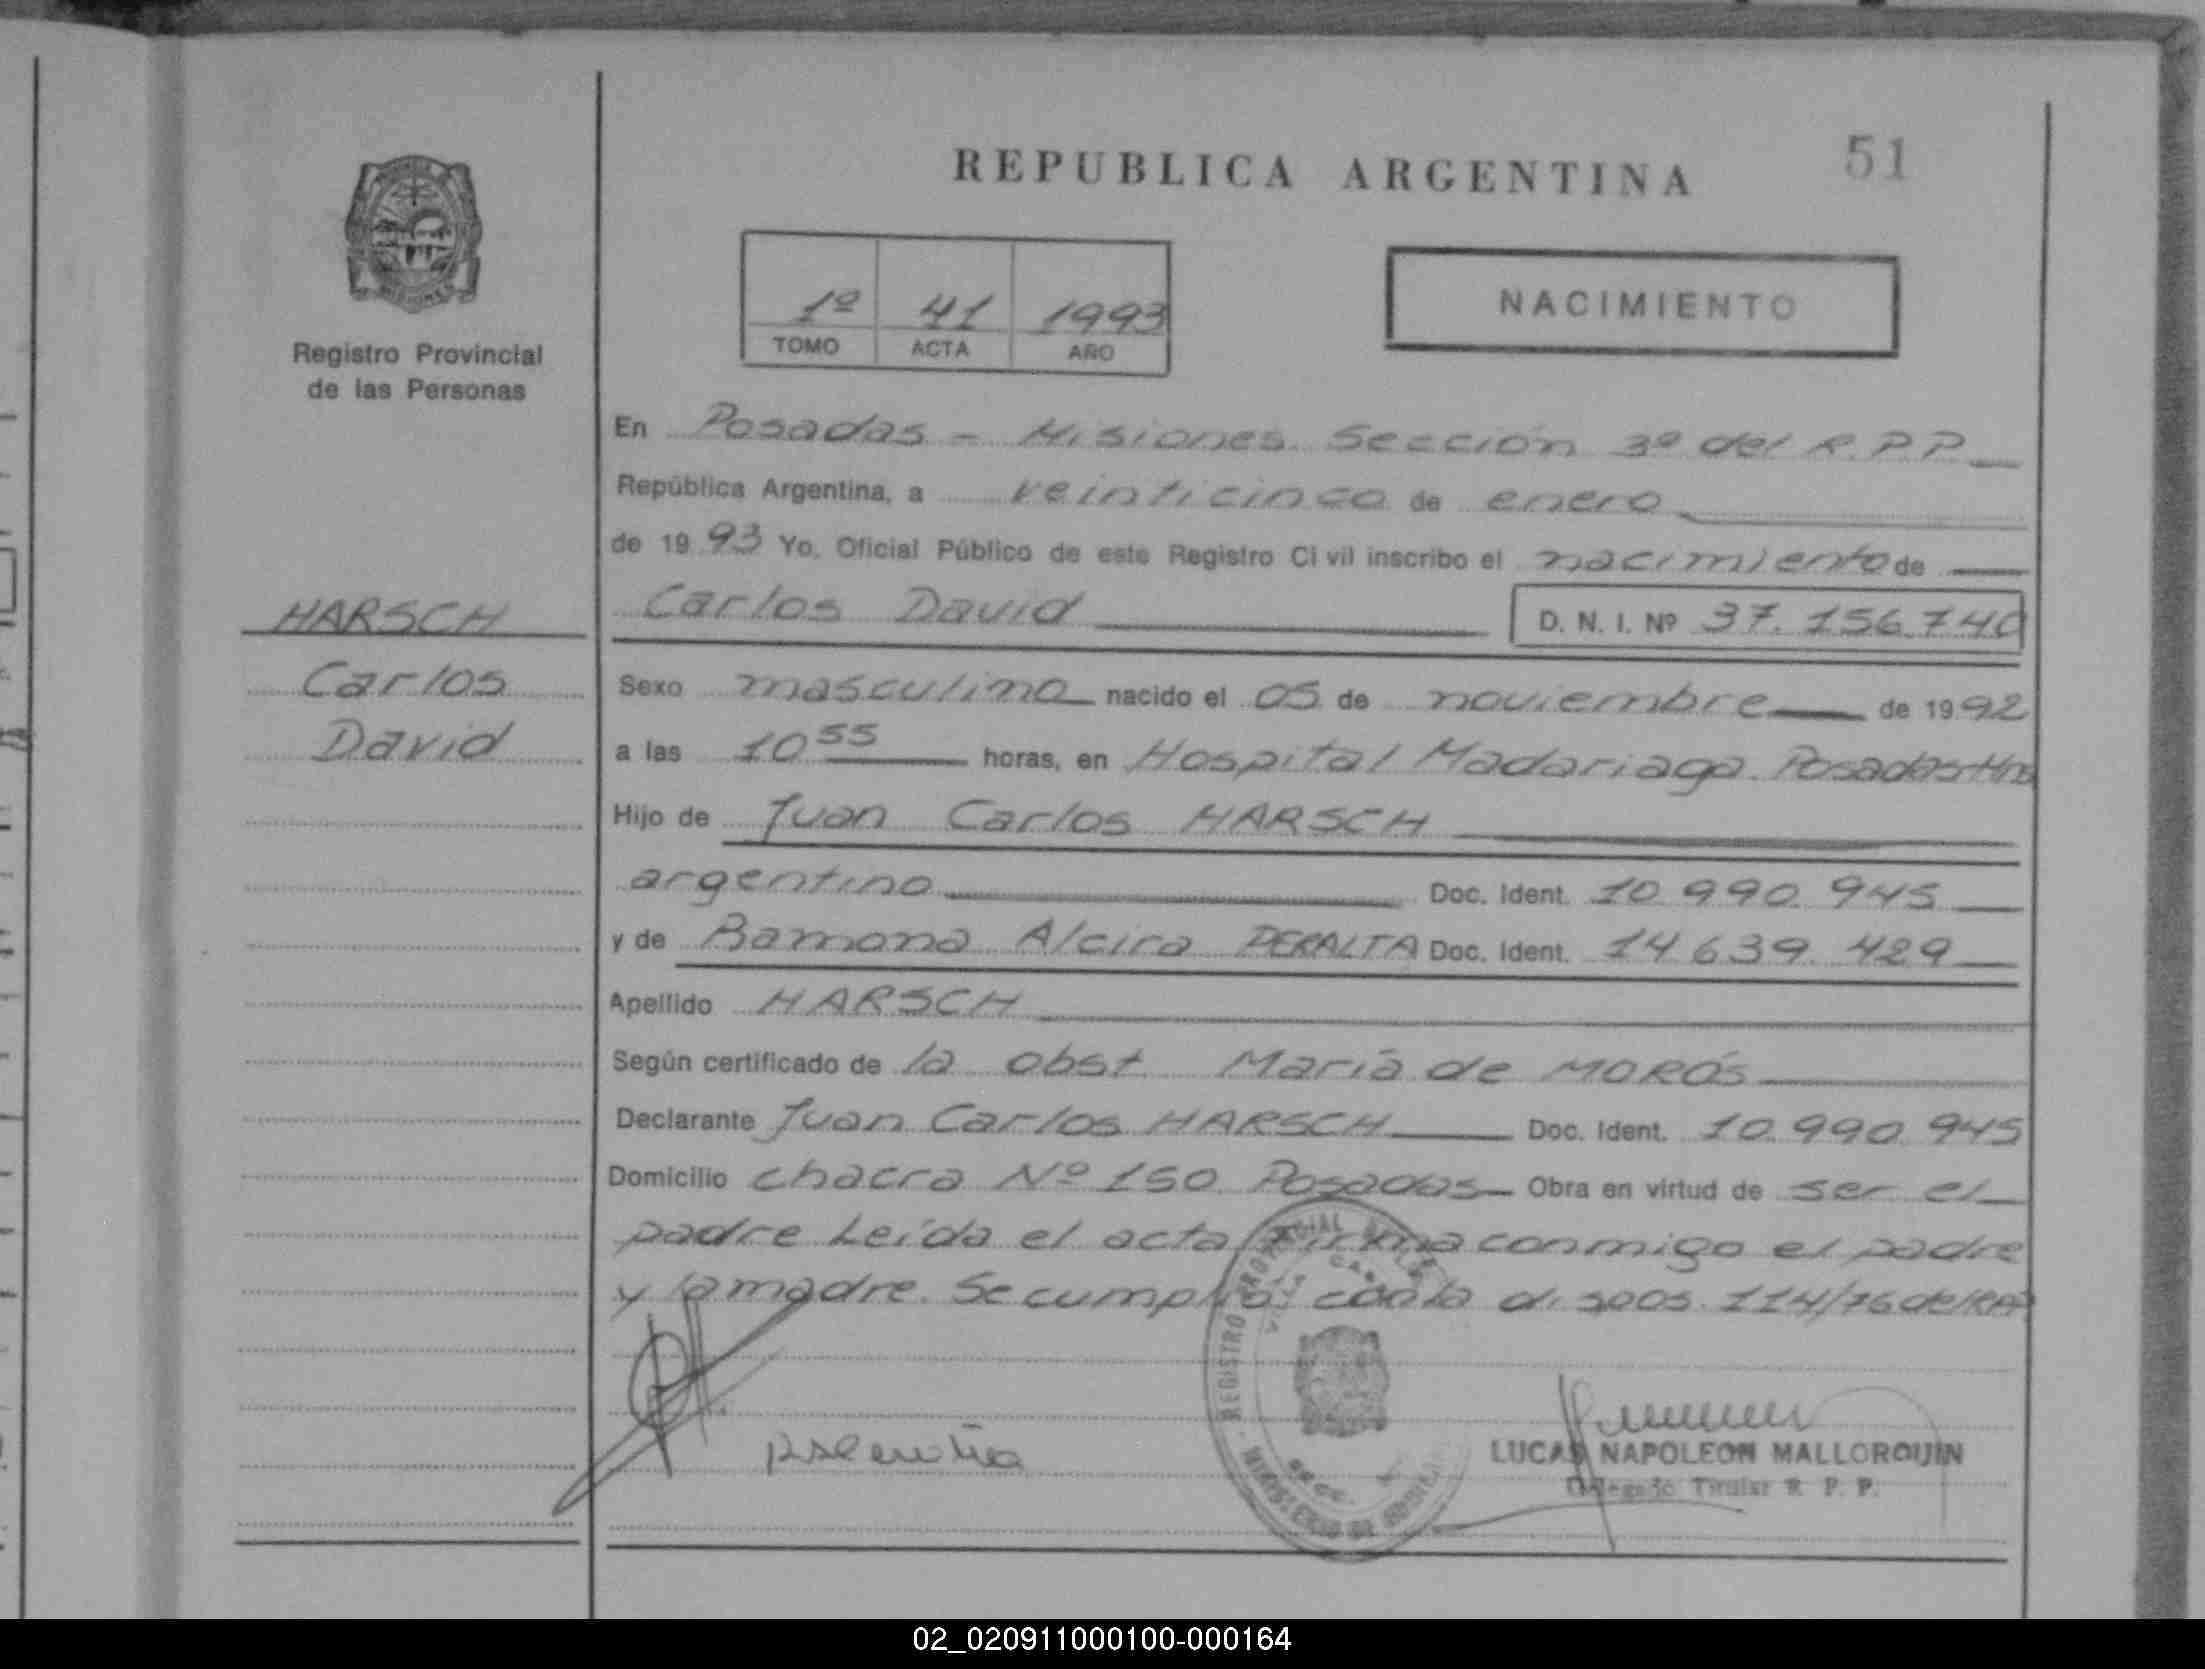 REPUBLICA ARGENTINA
51
Registro Provincial
de las Personas
1º 41 1993
TOMO ACTA AÑO
NACIMIENTO
En Posadas - Misiones. Sección 3º del R.P.P.
República Argentina, a veinticinco de enero
de 19 93 Yo, Oficial Público de este Registro Civil inscribo el nacimiento de
HARSCH
Carlos
David
Carlos David D. N. I. Nº 37.156.740
Sexo masculino nacido el 05 de noviembre de 19 92
a las 10 55 horas, en Hospital Madariaga. Posadas Mns
Hijo de Juan Carlos HARSCH
argentino Doc. Ident. 10.990.945
y de Ramona Alcira PERALTA Doc. Ident. 14.639.429
Apellido HARSCH
Según certificado de la obst. María de MORÓS
Declarante Juan Carlos HARSCH Doc. Ident. 10.990.945
Domicilio chacra Nº 150 Posadas Obra en virtud de ser el
padre Leída el acta firma conmigo el padre
y la madre. Se cumplió con la dispos. 114/76 del
REGISTRO PROVINCIAL
LUCAS NAPOLEON MALLORQUIN
Delegado Titular R. P. P.
02_020911000100-000164